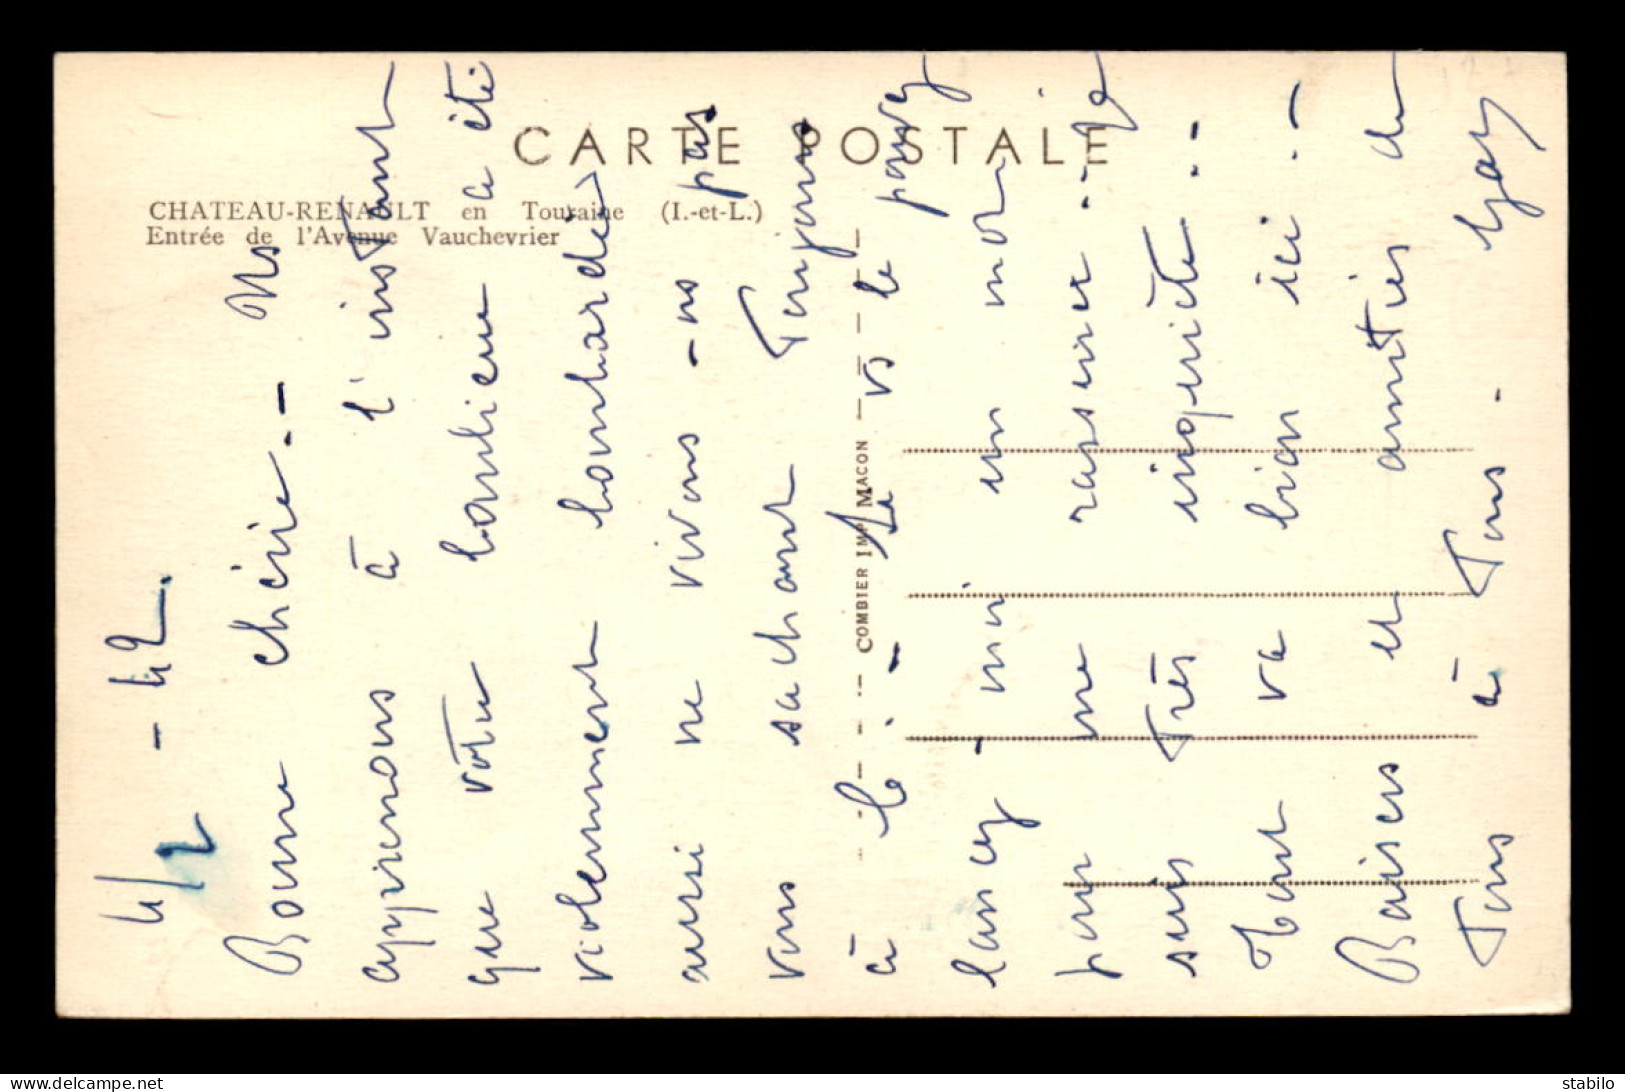 CARTE POSTALE
CHATEAU-RENAULT en Touraine (I.-et-L.)
Entrée de l'Avenue Vauchevrier
COMBIER IMP. MACON
4/2 - 42.
Bonne chérie. - Ns
apprenons à l'instant
que votre banlieue a été
violemment bombardée
aussi ne vivons-ns pas
vous sachant toujours
à C. - Si vs le pouvez
lancez-moi un mot
pour me rassurer. Je
suis très inquiète. -
Tout va bien ici. -
Baisers et amitiés de
Tous à Tous.
stabilo